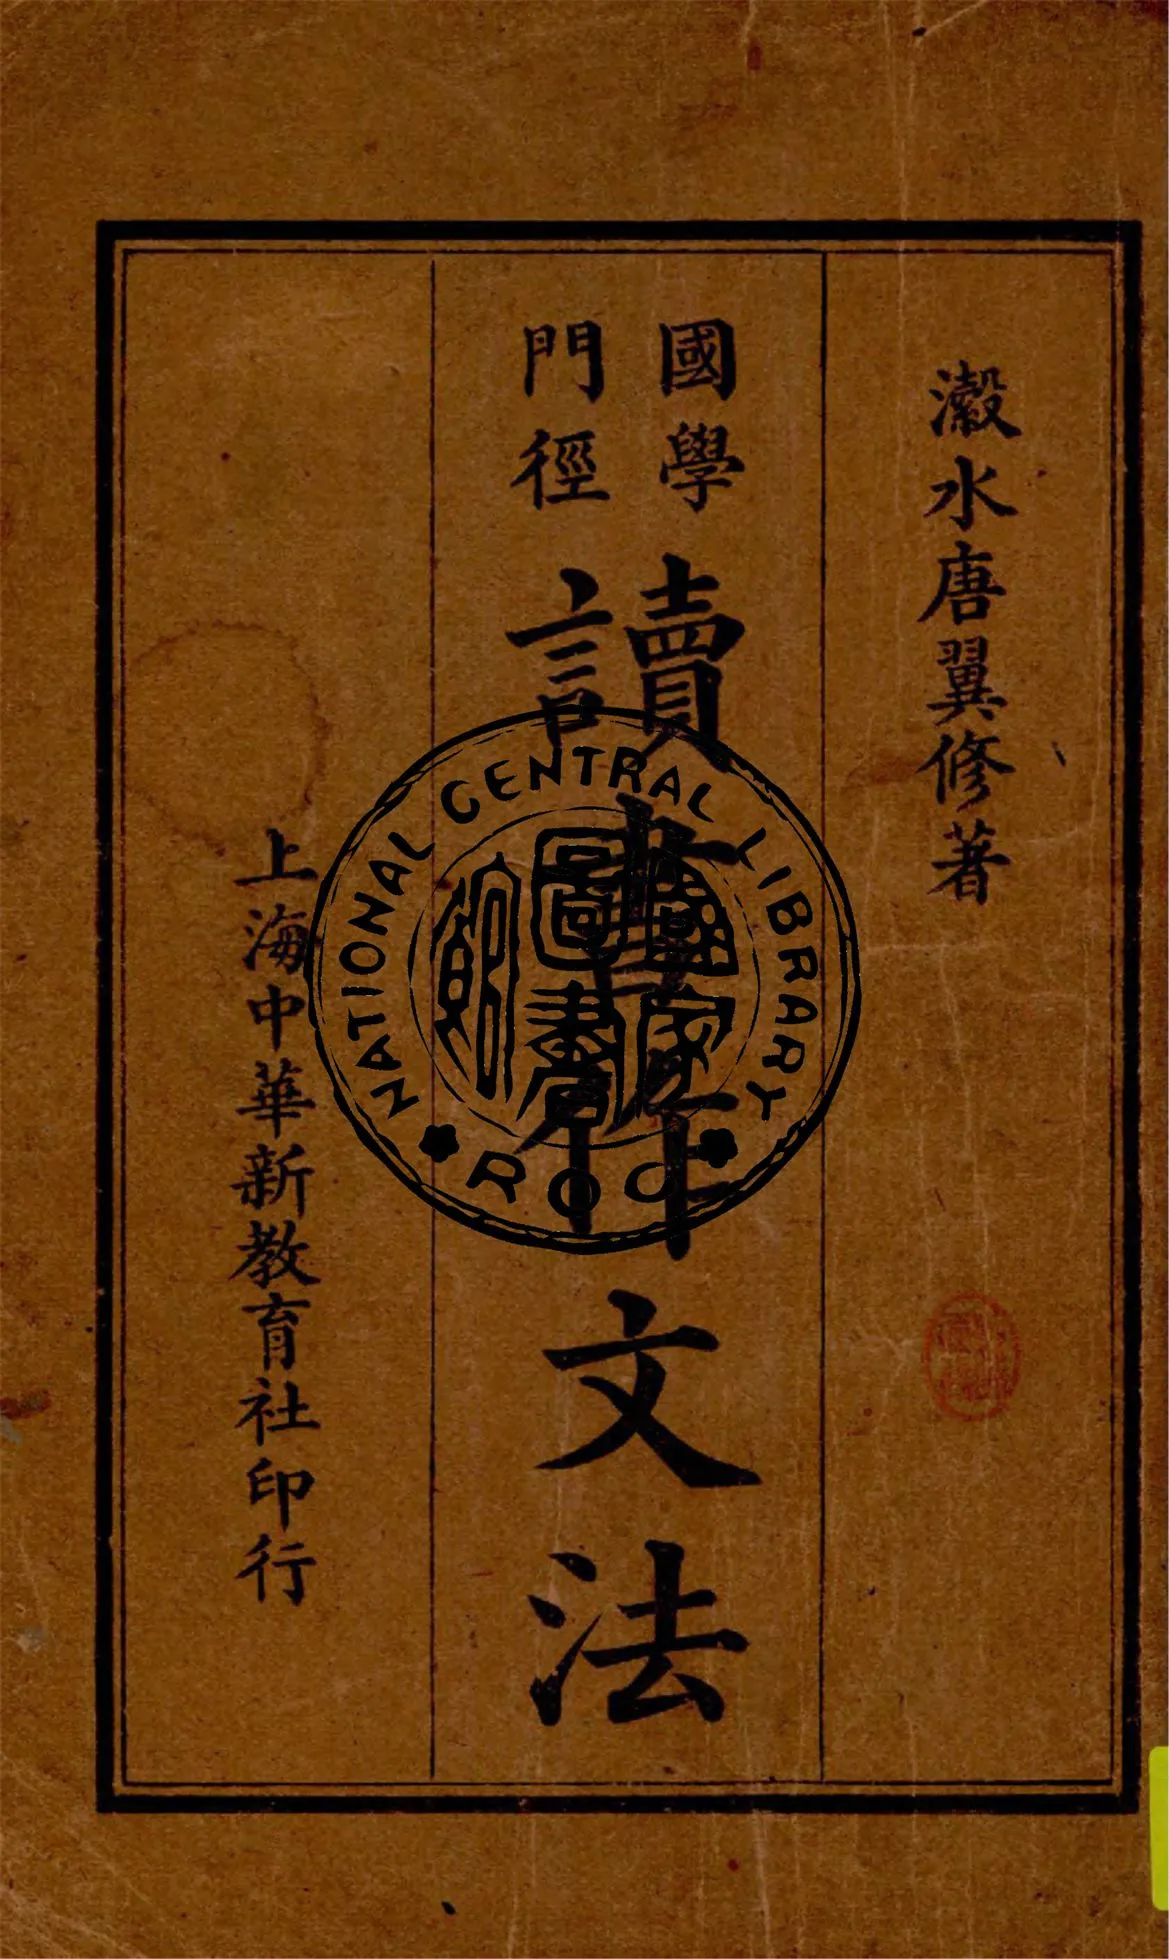 瀔水唐翼修著
國學
門徑
讀書作文法
上海中華新教育社印行
NATIONAL CENTRAL LIBRARY
國家
圖書
館
ROC